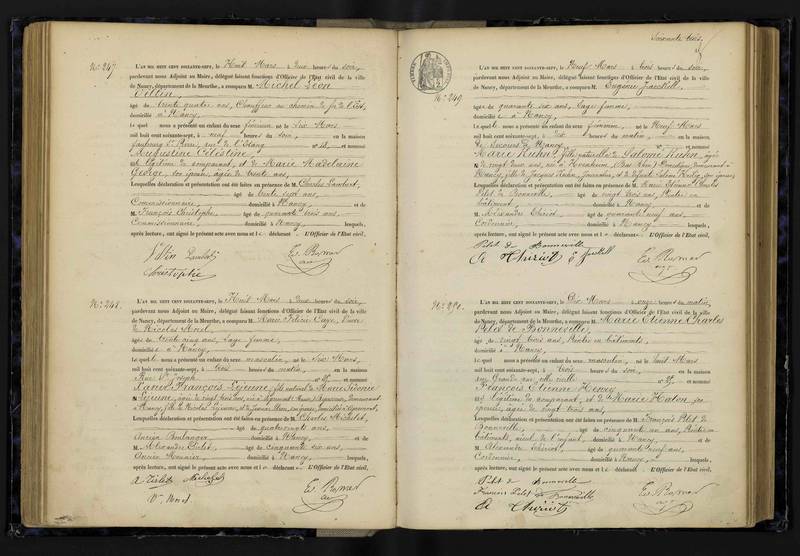 N.° 247.
L'AN MIL HUIT CENT SOIXANTE-SEPT, le Huit Mars à deux heures du soir,
pardevant nous Adjoint au Maire, délégué faisant fonctions d'Officier de l'État civil de la ville
de Nancy, département de la Meurthe, a comparu M. Michel Léon
âgé de trente quatre ans, Chauffeur au chemin de fer de l'Est,
domicilié à Nancy,
Lequel nous a présenté un enfant du sexe féminin né le Six Mars
mil huit cent soixante-sept, à neuf heures du soir, en la maison
faubourg St Pierre, rue de l'Etang n° 12, et nommé
Augustine Célestine,
et de Marie Madelaine
George, son épouse, âgée de trente ans,
Lesquelles déclaration et présentation ont été faites en présence de M. Charles Lambert,
âgé de trente sept ans,
Commissionnaire, domicilié à Nancy, et de
M. François Christophe, âgé de quarante trois ans,
Commissionnaire, domicilié à Nancy, lesquels,
après lecture, ont signé le présent acte avec nous et le déclarant. L'Officier de l'État civil,
Lambert
Christophe
N.° 248.
L'AN MIL HUIT CENT SOIXANTE-SEPT, le Huit Mars à deux heures du soir,
pardevant nous Adjoint au Maire, délégué faisant fonctions d'Officier de l'État civil de la ville
de Nancy, département de la Meurthe, a comparu M. Marie Félicie Caye, Veuve
de Nicolas
âgée de trente cinq ans, Sage femme,
domiciliée à Nancy,
Laquelle nous a présenté un enfant du sexe masculin, né le Six Mars,
mil huit cent soixante-sept, à trois heures du matin, en la maison
Rue St Joseph n° 25, et nommé
François Lejeune, fils naturel de Marie Sidonie
Lejeune, âgée de vingt trois ans,
à Nancy, fille de Nicolas Lejeune,
Lesquelles déclaration et présentation ont été faites en présence de M. Charles Michelet,
âgé de quatrevingts ans,
Ancien Boulanger, domicilié à Nancy, et de
M. Alexandre âgé de cinquante six ans,
Ancien Meunier, domicilié à Nancy, lesquels,
après lecture, ont signé le présent acte avec nous et la déclarante. L'Officier de l'État civil,
Soixante trois.
N.° 249.
L'AN MIL HUIT CENT SOIXANTE-SEPT, le Neuf Mars à trois heures du soir,
pardevant nous Adjoint au Maire, délégué faisant fonctions d'Officier de l'État civil de la ville
de Nancy, département de la Meurthe, a comparu M. Eugénie
âgée de quarante six ans, Sage femme,
domiciliée à Nancy,
Laquelle nous a présenté un enfant du sexe féminin, né le Neuf Mars
mil huit cent soixante-sept, à heures du matin, en la maison
de Secours de Nancy, n° et nommé
Marie Kuhn, fille naturelle de Salomé Kuhn, âgée
de vingt deux ans,
Nancy, fille de Jacques Kuhn, Journalier, et de défunte Salomé
Lesquelles déclaration et présentation ont été faites en présence de M. Marie Etienne Charles
Pilot de Bonneville, âgé de vingt trois ans, Peintre en
bâtiment, domicilié à Nancy, et de
M. Alexandre Thiriot, âgé de quarante neuf ans,
Cordonnier, domicilié à Nancy, lesquels,
après lecture, ont signé le présent acte avec nous et la déclarante. L'Officier de l'État civil,
Pilot de Bonneville
A Thiriot
N.° 250.
L'AN MIL HUIT CENT SOIXANTE-SEPT, le Dix Mars à onze heures du matin,
pardevant nous Adjoint au Maire, délégué faisant fonctions d'Officier de l'État civil de la ville
de Nancy, département de la Meurthe, a comparu M. Marie Etienne Charles
Pilot de Bonneville,
âgé de vingt trois ans, Peintre en bâtiments,
domicilié à Nancy,
Lequel nous a présenté un enfant du sexe masculin, né le huit Mars
mil huit cent soixante-sept, à trois heures du soir, en la maison
rue Grande, ville vieille n° et nommé
François Etienne Henry
fils légitime du comparant, et de Marie Haton son
épouse, âgée de vingt trois ans,
Lesquelles déclaration et présentation ont été faites en présence de M. François Pilot de
Bonneville, âgé de cinquante un ans, Peintre en
bâtiments, aïeul de l'enfant, domicilié à Nancy, et de
M. Alexandre Thiriot, âgé de quarante neuf ans,
Cordonnier, domicilié à Nancy, lesquels,
après lecture, ont signé le présent acte avec nous et le déclarant. L'Officier de l'État civil,
Pilot de Bonneville
François Pilot de Bonneville
A Thiriot